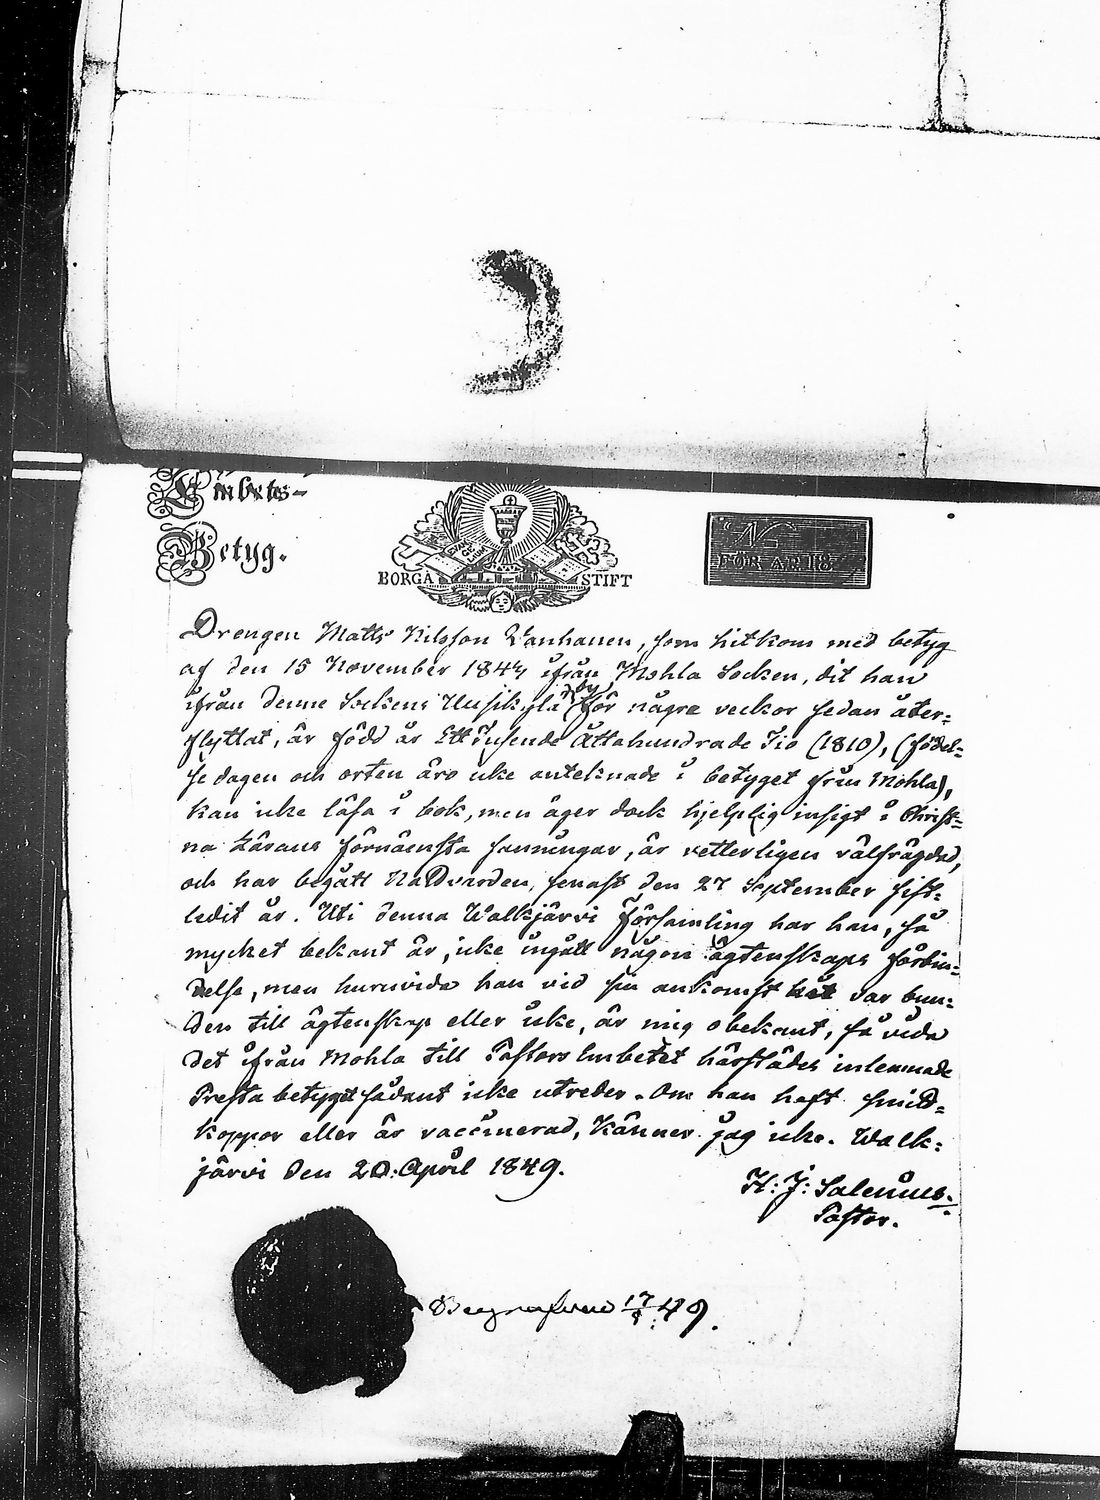 Embets-
Betyg.
BORGÅ STIFT
FÖR ÅR 18
Drengen Matts Nilsson Vanhanen, som hitkom med betyg
af den 15 November 1844 ifrån Mohla Socken, dit han
ifrån denna Sockens Uusikylä by för några veckor sedan åter-
flyttat, är född år Ett Tusende Åttahundrade Tio (1810), (födel-
se dagen och orten äro icke antecknade i betyget från Mohla),
kan icke läsa i bok, men äger dock hjelplig insigt i Christ-
na Lärans förnämsta sanningar, är vetterligen välfrägdad,
och har begått Nattvarden, senast den 27 September sist-
ledit år. Uti denna Walkjärvi Församling har han, så
mycket bekant är, icke ingått någon ägtenskaps förbin-
delse, men huruvida han vid sin ankomst hit var bun-
den till ägtenskap eller icke, är mig obekant, så vida
det ifrån Mohla till Pastors Embetet härstädes inlemnade
Presta betyget sådant icke utreder. Om han haft smitt-
koppor eller är vaccinerad, känner jag icke. Walk-
järvi den 20. April 1849.
H: J: Salenius.
Pastor.
Begrafven 17/ 49.